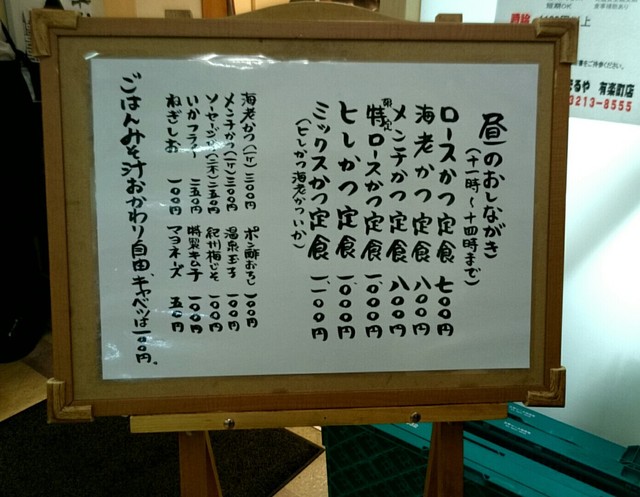 昼のおしながき
(十一時〜十四時まで)
ロースかつ定食 七〇〇円
海老かつ定食 八〇〇円
メンチかつ定食 八〇〇円
特ロースかつ定食 一、〇〇〇円
ヒレかつ定食 一、〇〇〇円
ミックスかつ定食 一、一〇〇円
(ヒレかつ海老かついか)
海老かつ(一ケ)三〇〇円
メンチかつ(一ケ)三〇〇円
ソーセージ(二本)二五〇円
いかフライ 二五〇円
ねぎしお 一〇〇円
ポン酢おろし 一〇〇円
温泉玉子 一〇〇円
紀州梅じそ 一〇〇円
特製キムチ 一〇〇円
マヨネーズ 五〇円
ごはんみそ汁おかわり自由、キャベツは一〇〇円。
るや 有楽町店
0213-8555